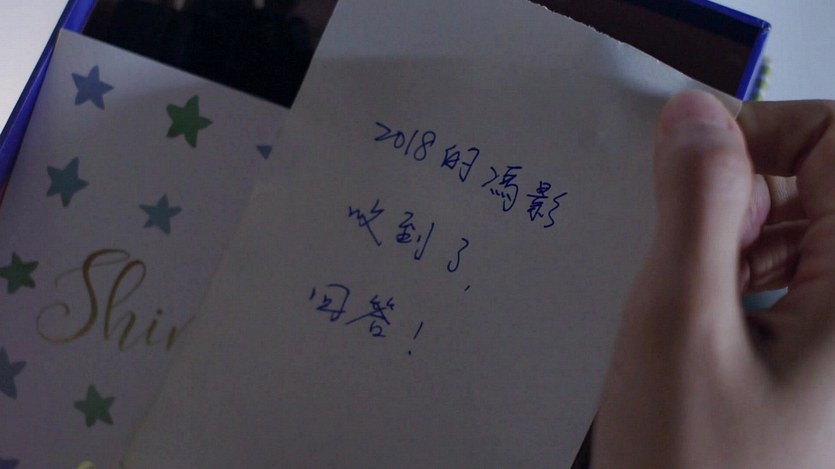 2018的馮影
收到了,
回答!
Shin